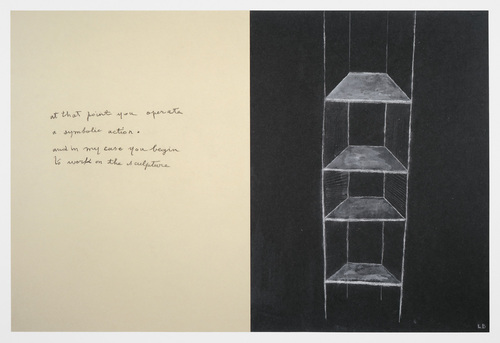 at that point you operate
a symbolic action.
and in my case you begin
to work on the sculpture
L.B.